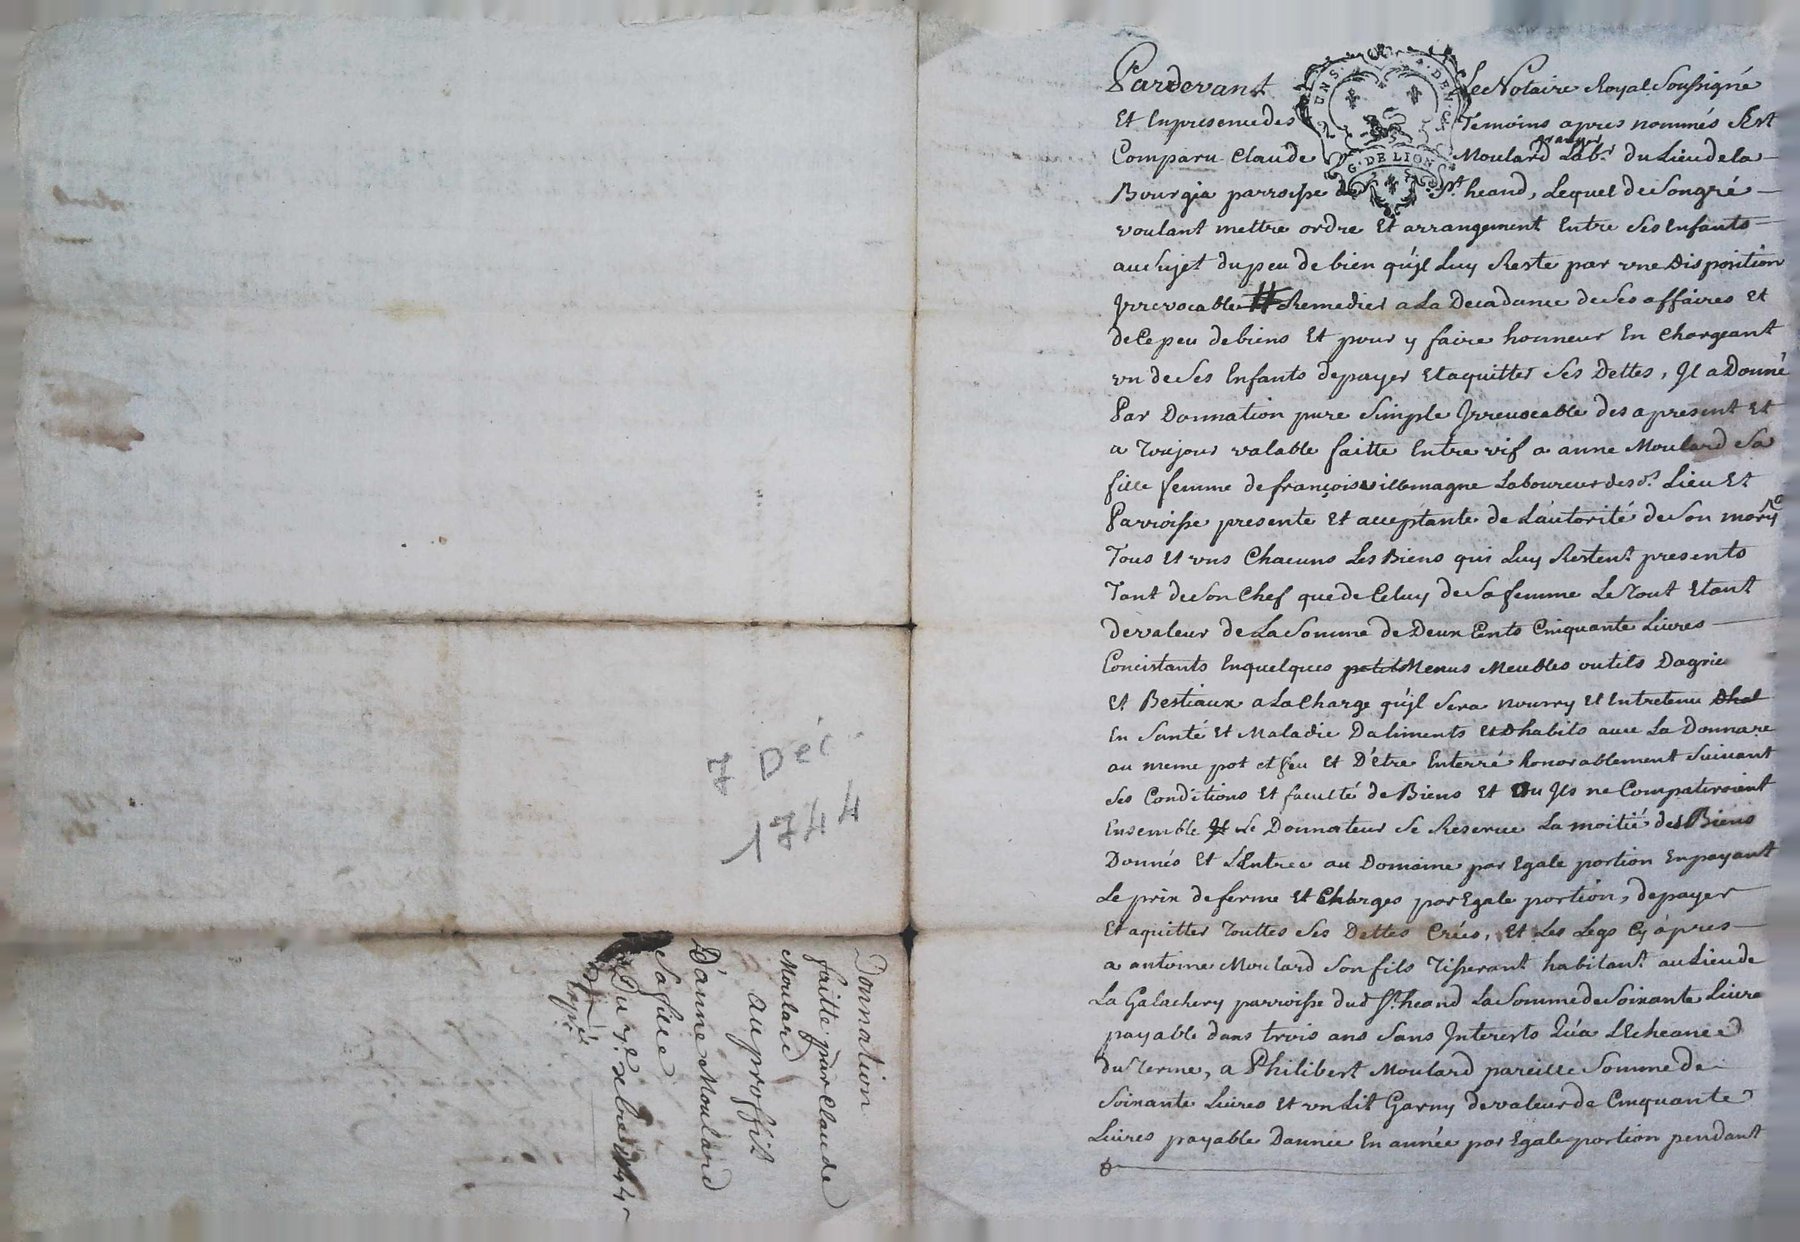 7 Déc.
1744
Donnation
faitte par Claude
Moulard
au proffit
D'anne Moulard
Sa fille
Du 7e. xbre 1744
Expié
UNS . DEN
G. DE LION
Pardevant Le Notaire Royal Soussigné
Et En presence des Temoins apres nommés Est
Comparu Claude Moulard granger Labr. du Lieu de la
Bourgia parroisse de St. heand, Lequel de Son gré
voulant mettre ordre Et arrangement Entre Ses Enfants
au Sujet du peu de bien qu'jl Luy Reste par vne Disposition
Jrrevocable # Remedier a La Decadance de Ses affaires Et
de Ce peu de biens Et pour y faire honneur En Chargeant
vn de Ses Enfants de payer Et aquitter Ses Dettes, Jl a Donné
Par Donnation pure Simple Jrreuocable des a present Et
a Toujour valable faitte Entre vif a anne Moulard Sa
fille femme de françois villemagne Laboureur desd. Lieu Et
Parroisse presente Et acceptante de L'autorité de Son mary
Tous Et vns Chacuns Les Biens qui Luy Restent presents
Tant de Son Chef que de Celuy de Sa femme Le Tout Etant
de valeur de La Somme de Deux Cents Cinquante Liures
Concistants En quelques petits Menus Meubles outils Dagrie
Et Bestiaux a La Charge qu'jl Sera nourry Et Entretenu Dhab
En Santé Et Maladie Daliments Et Dhabits auec La Donnare
au meme pot et feu Et D'être Enterré honorablement Suiuant
Ses Conditions Et faculté de Biens Et Ou Jls ne Compatiroient
Ensemble Le Donnateur Se Reserue La moitié des Biens
Donnés Et L'Entree au Domaine par Egale portion En payant
Le prix de ferme Et Charges par Egale portion, de payer
Et aquitter Touttes Ses Dettes Crées, Et Les Legs Cy apres
a antoine Moulard Son fils Tisserant habitant au Lieu de
La Galachery parroisse dud St. heand La Somme de Soixante Liure
payable dans trois ans Sans Interests Qu'a L'Echeance
du Terme, a Philibert Moulard pareille Somme de
Soixante Liures Et vn Lit Garny de valeur de Cinquante
Liures payable D'année En année par Egale portion pendant